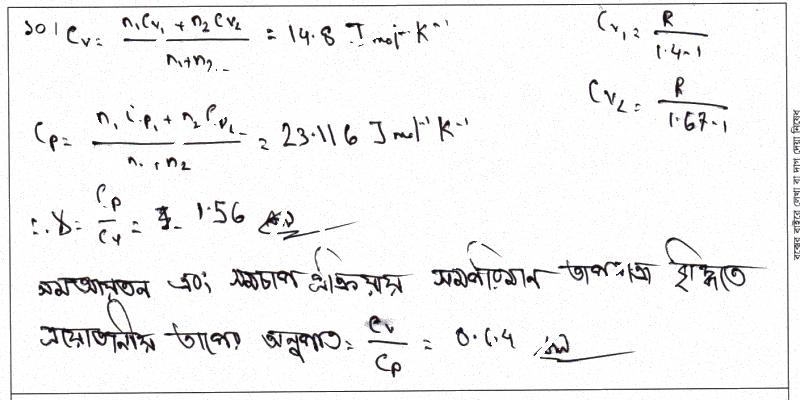 ১০। Cv = (n₁Cv₁ + n₂Cv₂)/(n₁+n₂) = 14.8 J mol⁻¹ K⁻¹
Cv₁ = R/(1.4-1)
Cv₂ = R/(1.67-1)
Cp = (n₁Cp₁ + n₂Cp₂)/(n₁+n₂) = 23.116 J mol⁻¹ K⁻¹
∴ γ = Cp/Cv = 1.56
সমআয়তন এবং সমচাপ প্রক্রিয়ায় সমপরিমান তাপমাত্রা বৃদ্ধিতে
প্রয়োজনীয় তাপের অনুপাত = Cv/Cp = 0.64